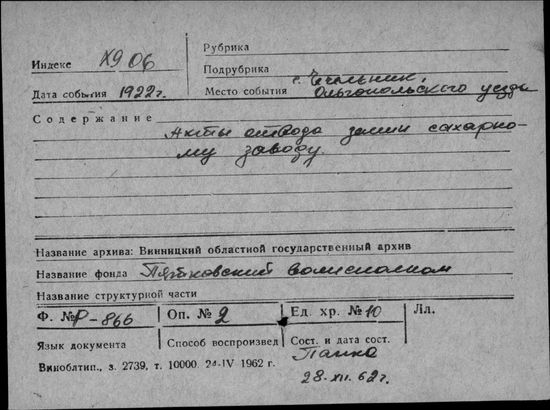 Индекс XIV 06
Рубрика
Подрубрика
Дата события 1922 г.
Место события с. Чечельник,
Ольгопольского уезда
Содержание Акты отвода земли сахарно-
му заводу.
Название архива: Винницкий областной государственный архив
Название фонда Пятковский волисполком
Название структурной части
Ф. № Р-866 Оп. № 2 Ед. хр. № 10 Лл.
Язык документа Способ воспроизвед Сост. и дата сост.
Виноблтип., з. 2739, т. 10000 24-IV 1962 г.
28.XII.62 г.